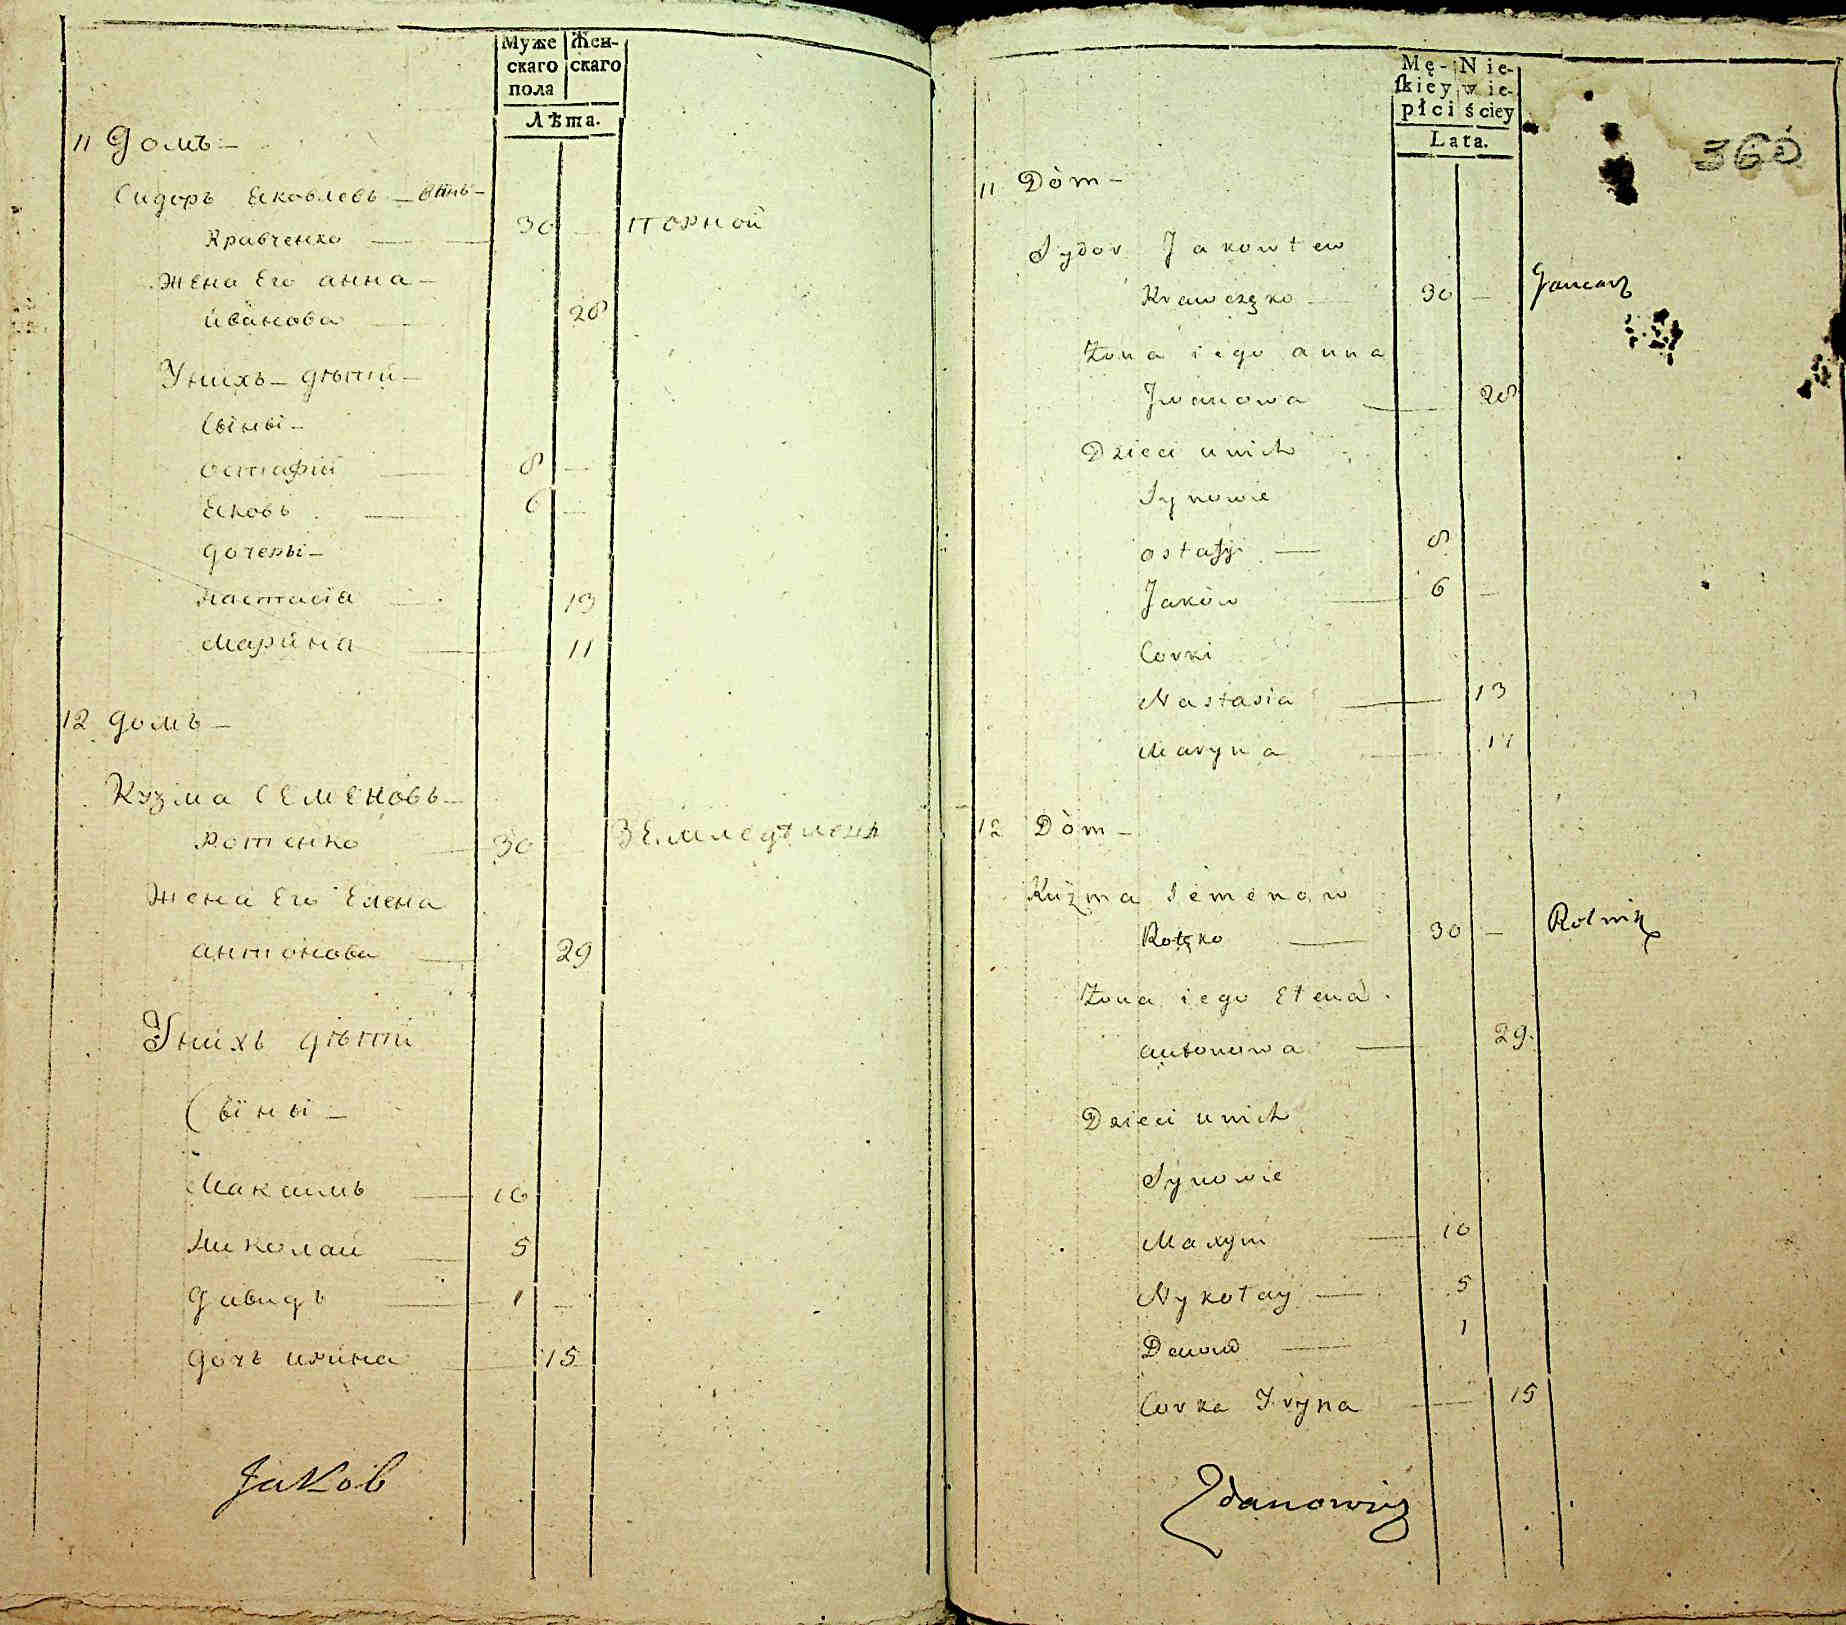 Муже Жен-
скаго скаго
пола
Лѣта.
11 Домъ -
Сидоръ Есковлевъ - сынъ -
Кравченко — 30 —
Жена Его анна -
ивановна — 28
Унихъ - дѣтий -
Сыны -
остафий — 8 —
Есковъ — 6 —
дочеры -
настасіа — 13
Марина — 11
12 домъ -
Кузма СЕМЕНовъ -
Ротенко — 30 —
Жена Его Елена
антонова — 29
Унихъ дѣтий
Сыны -
Максимъ — 10
Николай — 5
Давидъ — 1 —
дочъ ирина — 15
Jakob
Mę- Nie-
skiey wie-
płci ściey
Lata.
360
11 Dòm -
Sydor Jakowlew
Krawczęko — 30 — Gancarz
Żona iego anna
Iwanowa — 28
Dzieci unich
Synowie
ostafy — 8
Jaków — 6 —
Corki
Nastasia — 13
Maryna — 11
12 Dòm -
Kuzma Semenow
Rotęko — 30 — Rolnik
Żona iego Elena
antonowa — 29.
Dzieci unich
Synowie
Maxym — 10
Nykołay — 5
Dawid — 1
Corka Iryna — 15
Zdanowicz